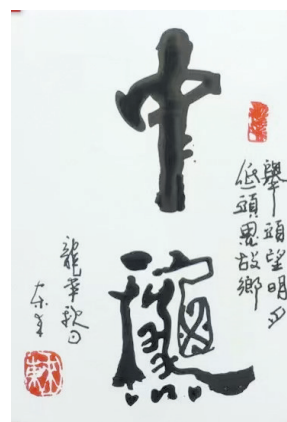 中龝
舉頭望明月
低頭思故鄉
龍年秋日